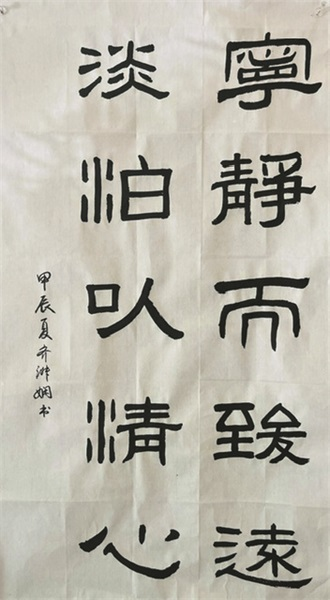 寧靜而致遠
淡泊以清心
甲辰夏齐娟书